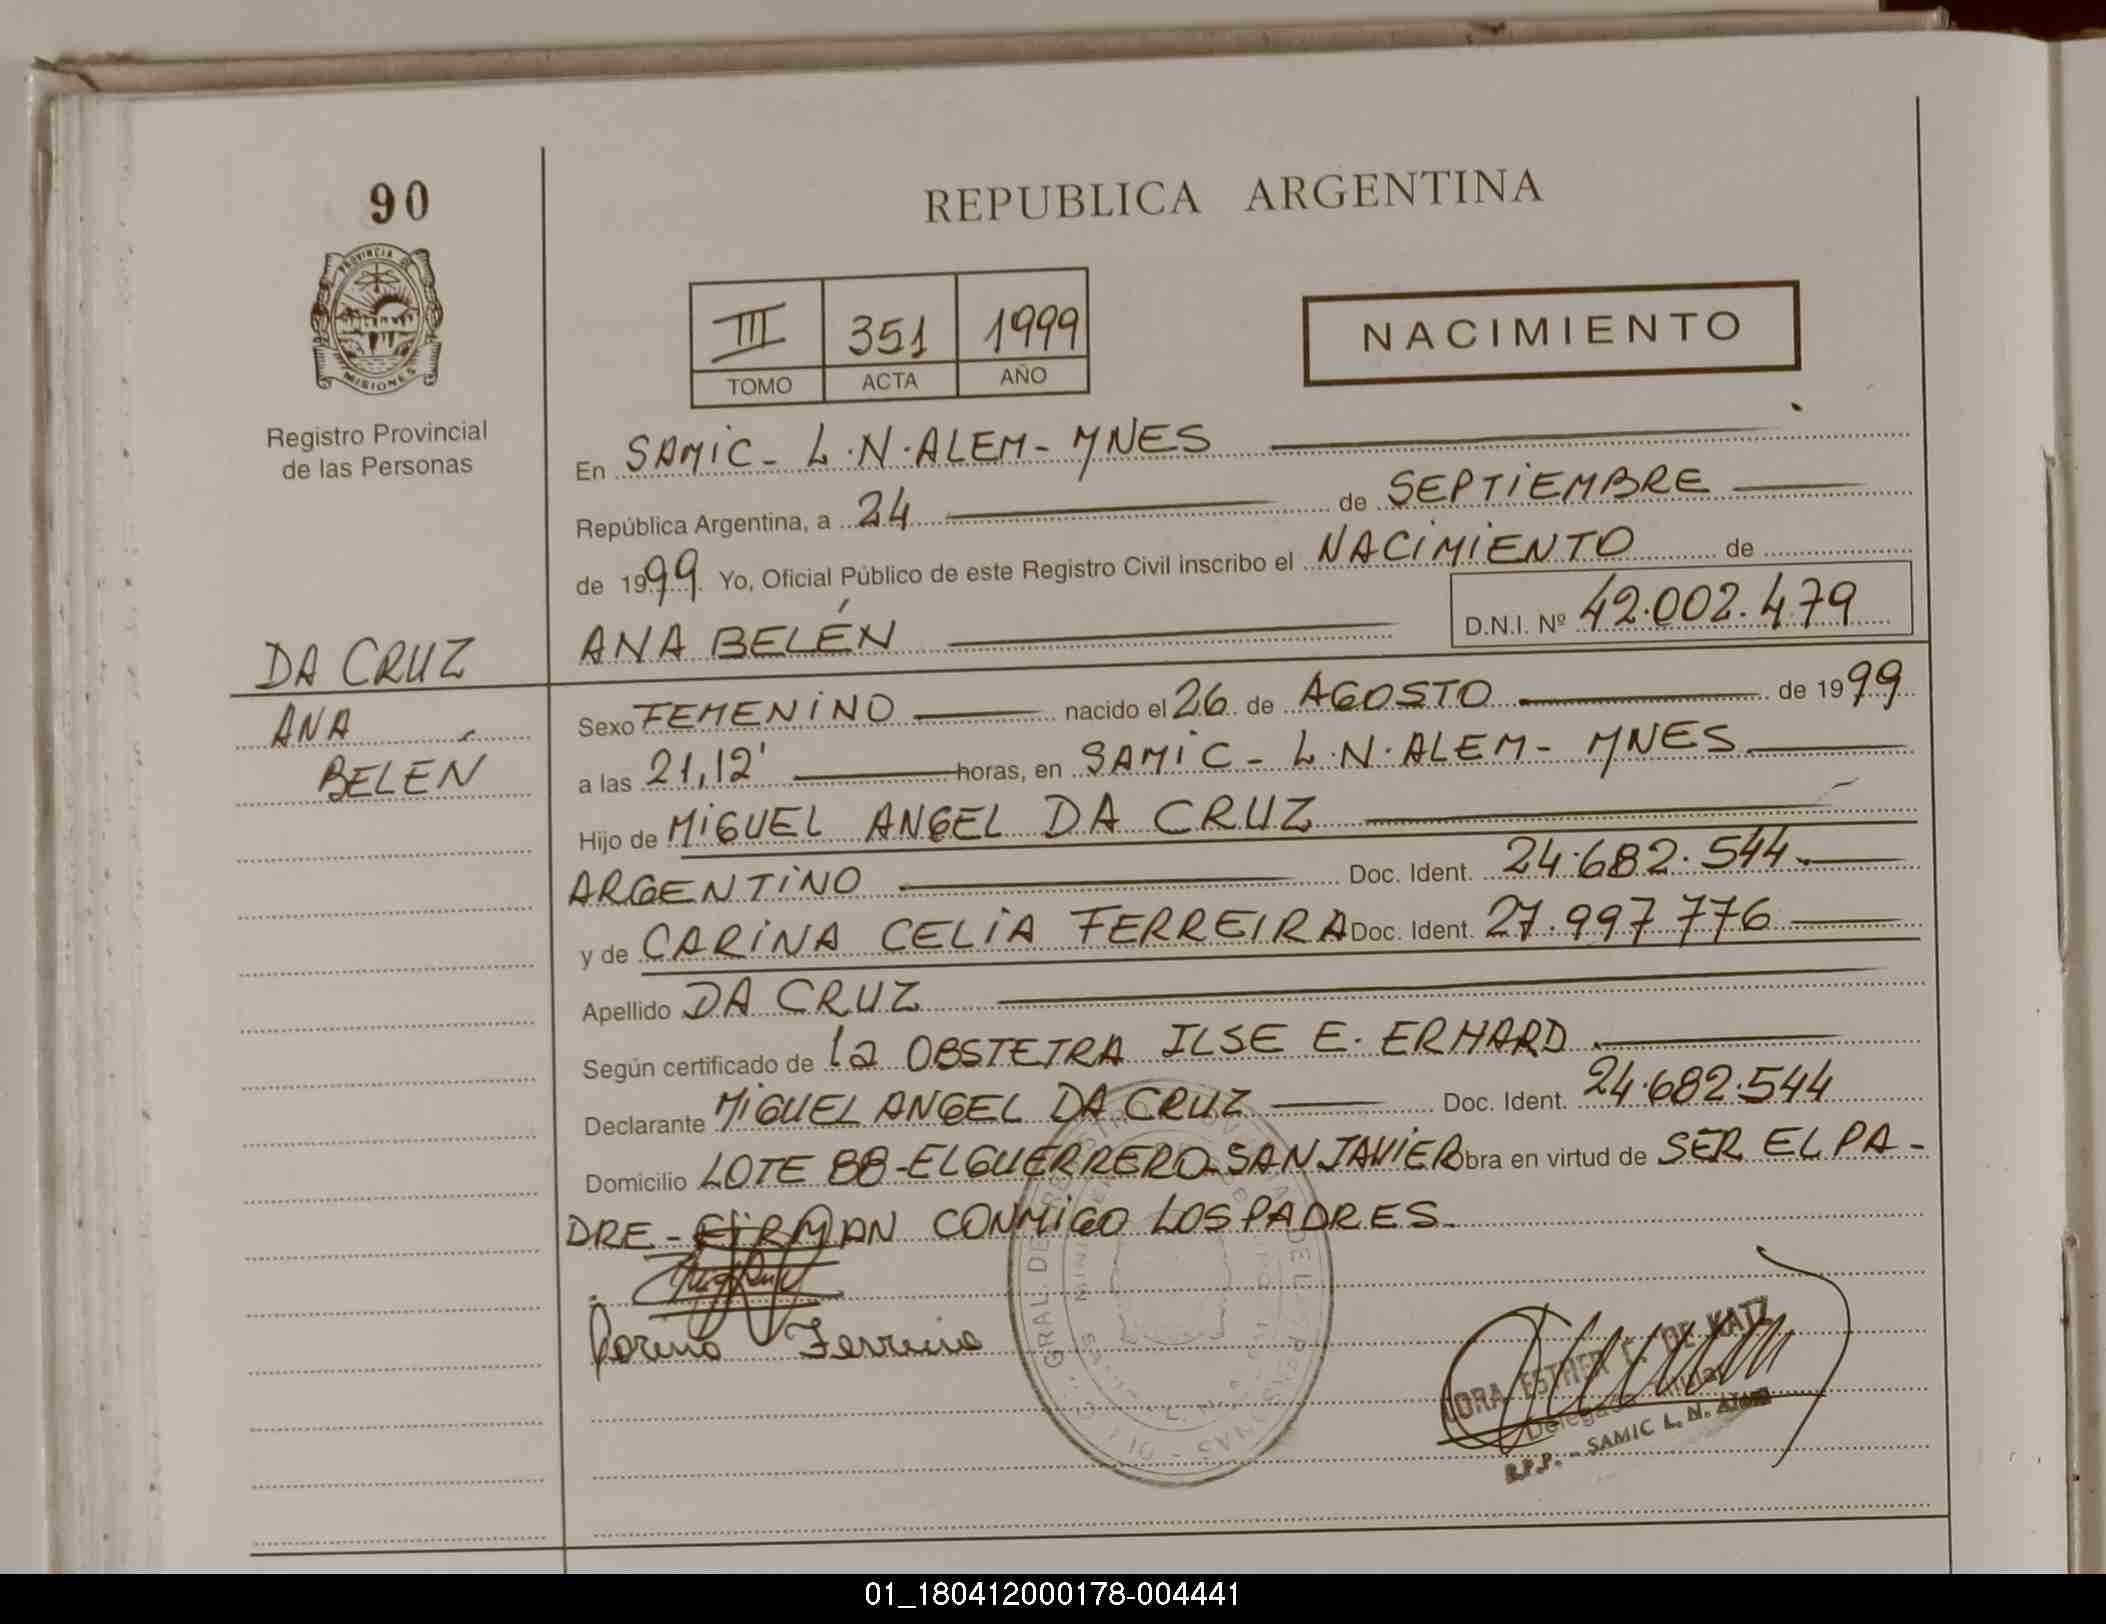 90
REPUBLICA ARGENTINA
PROVINCIA DE
MISIONES
Registro Provincial
de las Personas
III 351 1999
TOMO ACTA AÑO
NACIMIENTO
En SAMIC - L.N. ALEM - MNES
República Argentina, a 24 de SEPTIEMBRE
de 1999. Yo, Oficial Público de este Registro Civil inscribo el NACIMIENTO de
ANA BELÉN D.N.I. Nº 42.002.479
DA CRUZ
ANA
BELÉN
Sexo FEMENINO nacido el 26 de AGOSTO de 1999
a las 21,12' horas, en SAMIC - L.N. ALEM - MNES
Hijo de MIGUEL ANGEL DA CRUZ
ARGENTINO Doc. Ident. 24.682.544
y de CARINA CELIA FERREIRA Doc. Ident. 27.997.776
Apellido DA CRUZ
Según certificado de la OBSTETRA ILSE E. ERHARD
Declarante MIGUEL ANGEL DA CRUZ Doc. Ident. 24.682.544
Domicilio LOTE 88 - EL GUERRERO - SAN JAVIER Obra en virtud de SER EL PA-
DRE - FIRMAN CONMIGO LOS PADRES.
Carina Ferreira
ESTHER DE KATZ
R.P.P. - SAMIC L. N. Alem
01_180412000178-004441